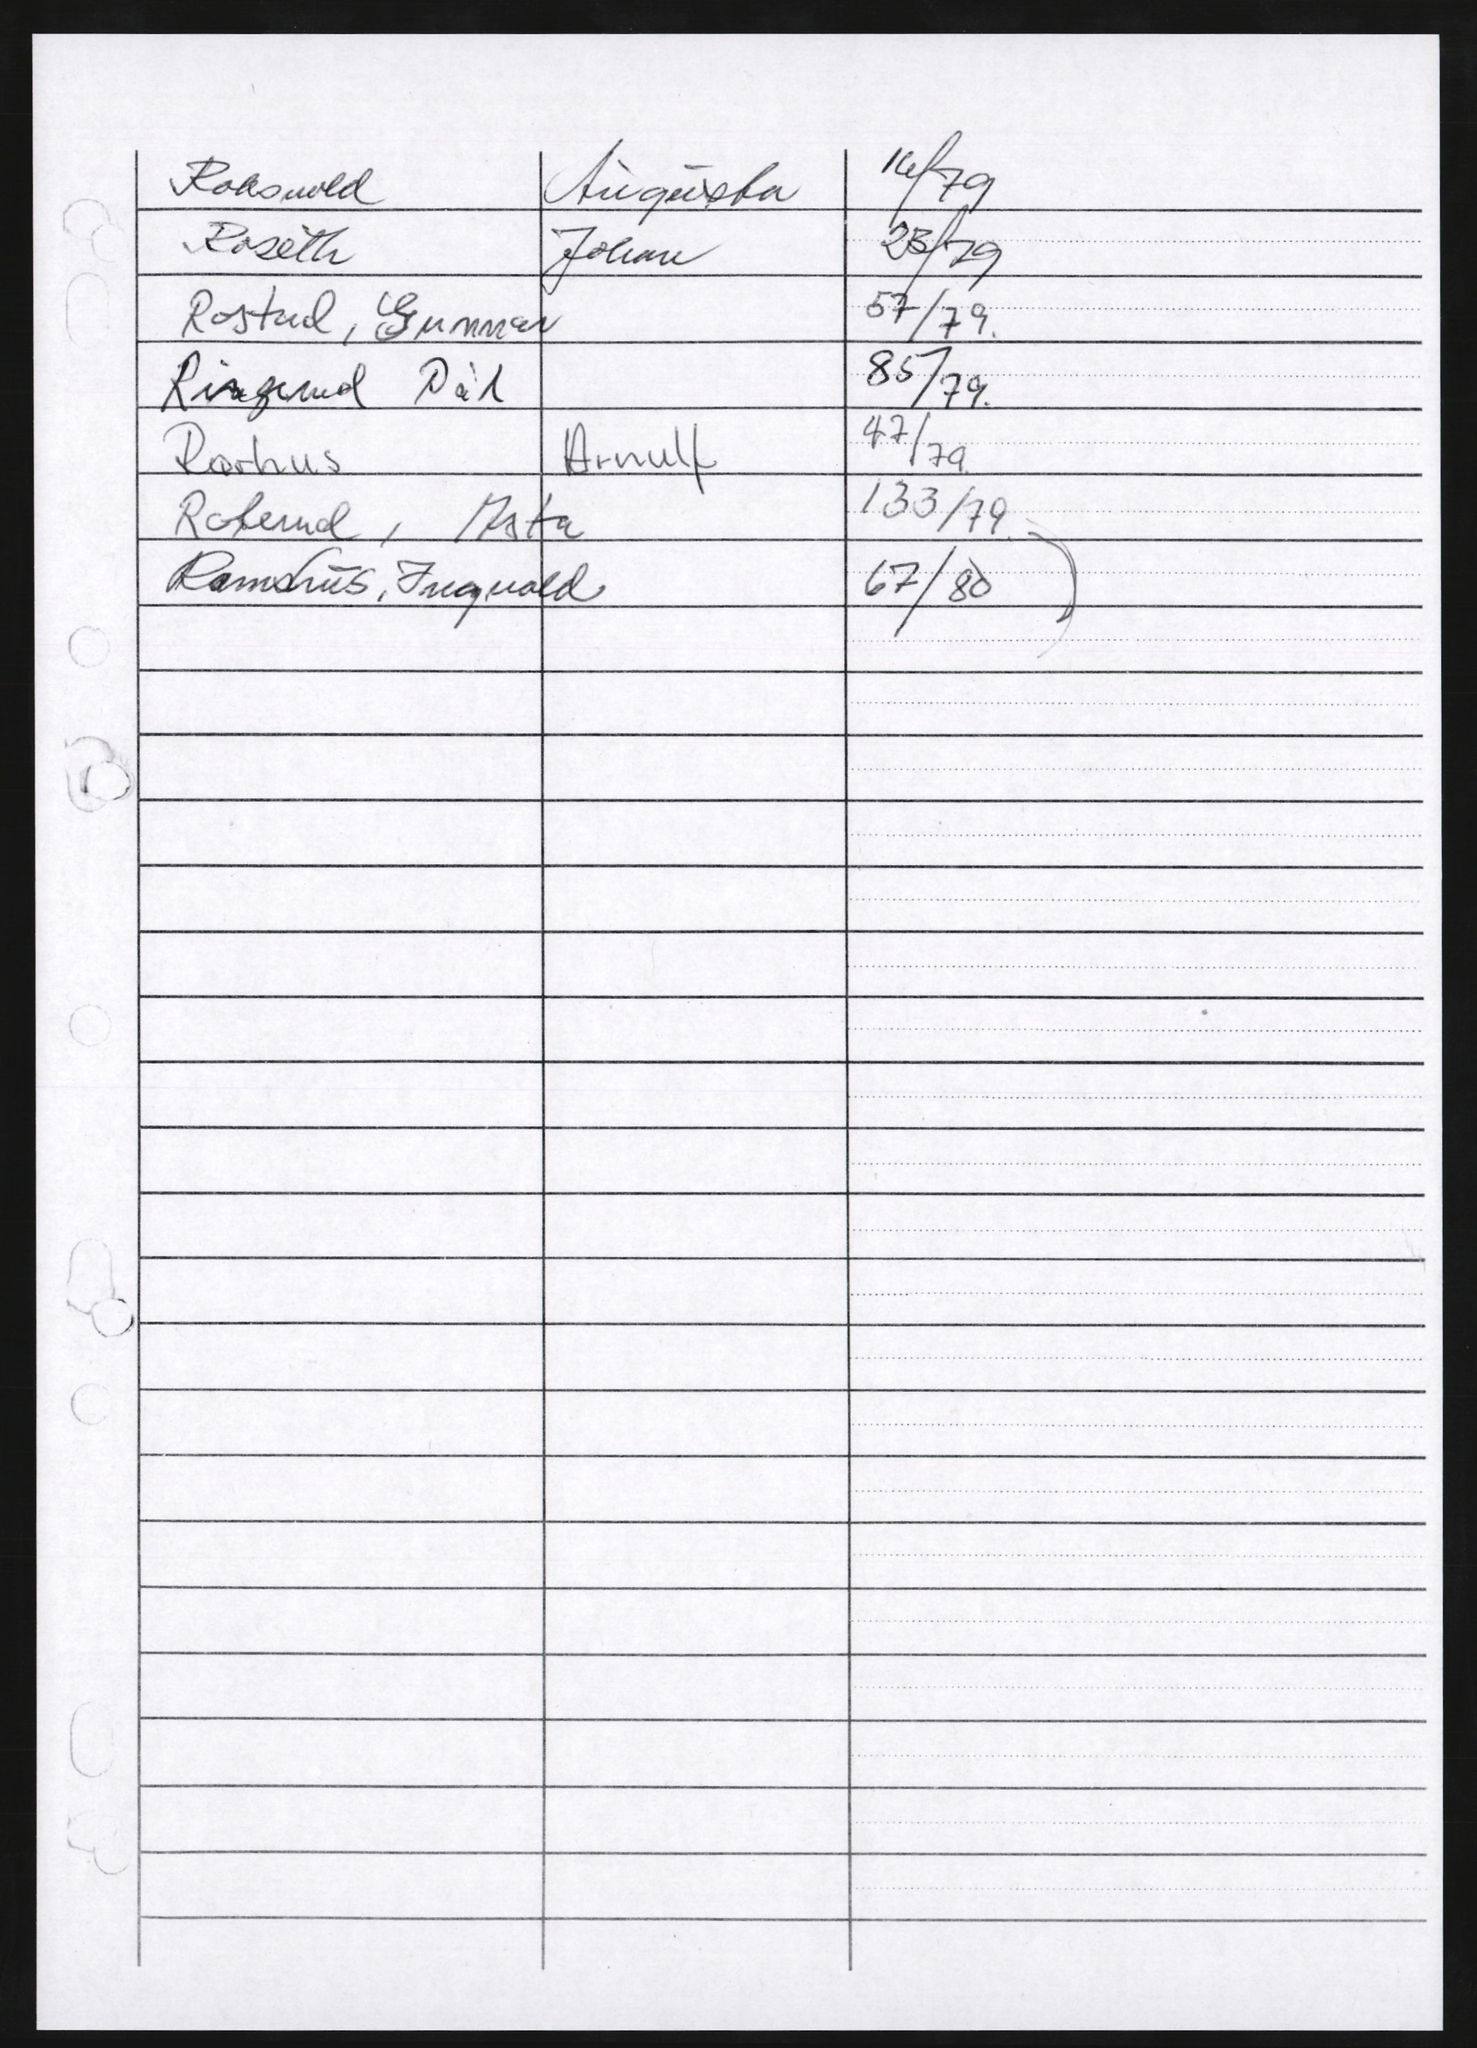 Roksvold Augusta 14/79
Roseth Johan 23/79
Rostad, Gunnar 57/79.
Ringerud Pål 85/79.
Rørhus Arnulf 47/79.
Roterud, Asta 133/79.
Ramshus, Ingvald 67/80